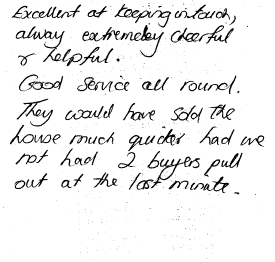 Excellent at keeping in touch,
alway extremeley cheerful
& helpful.
Good service all round.
They would have sold the
house much quicker had we
not had 2 buyers pull
out at the last minute.